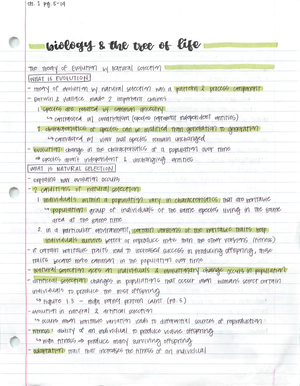 ch. 1 pg. 5-14
biology & the tree of life
The theory of Evolution by Natural Selection
WHAT IS EVOLUTION
- theory of evolution w/ natural selection has a pattern & process component
- Darwin & Wallace made 2 important claims
1. species are related by common ancestry
↳ contrasted w/ creationism (species represent independent entities)
2. characteristics of species can be modified from generation to generation
↳ contrasted w/ view that species remain unchanged
- evolution: change in the characteristics of a population over time
→ species aren't independent & unchanging entities
WHAT IS NATURAL SELECTION
- explains how evolution occurs
- 2 conditions of natural selection
1. individuals within a population vary in characteristics that are heritable
↳ population: group of individuals of the same species living in the same
area at the same time
2. in a particular environment, certain versions of the heritable traits help
individuals survive better or reproduce more than the other versions (fitness)
- if certain heritable traits lead to increased success in producing offspring, those
traits become more common in the population over time
- natural selection acts on individuals & evolutionary change occurs in populations
- artificial selection: changes in populations that occur when humans select certain
individuals to produce the most offspring
↳ figure 1.3 - high
- evolution in natural & artificial selection
↳ occurs when heritable variation leads to differential success in reproduction
- fitness: ability of an individual to produce viable offspring
↳ high fitness → produce many surviving offspring
- adaptation: trait that increases the fitness of an individual